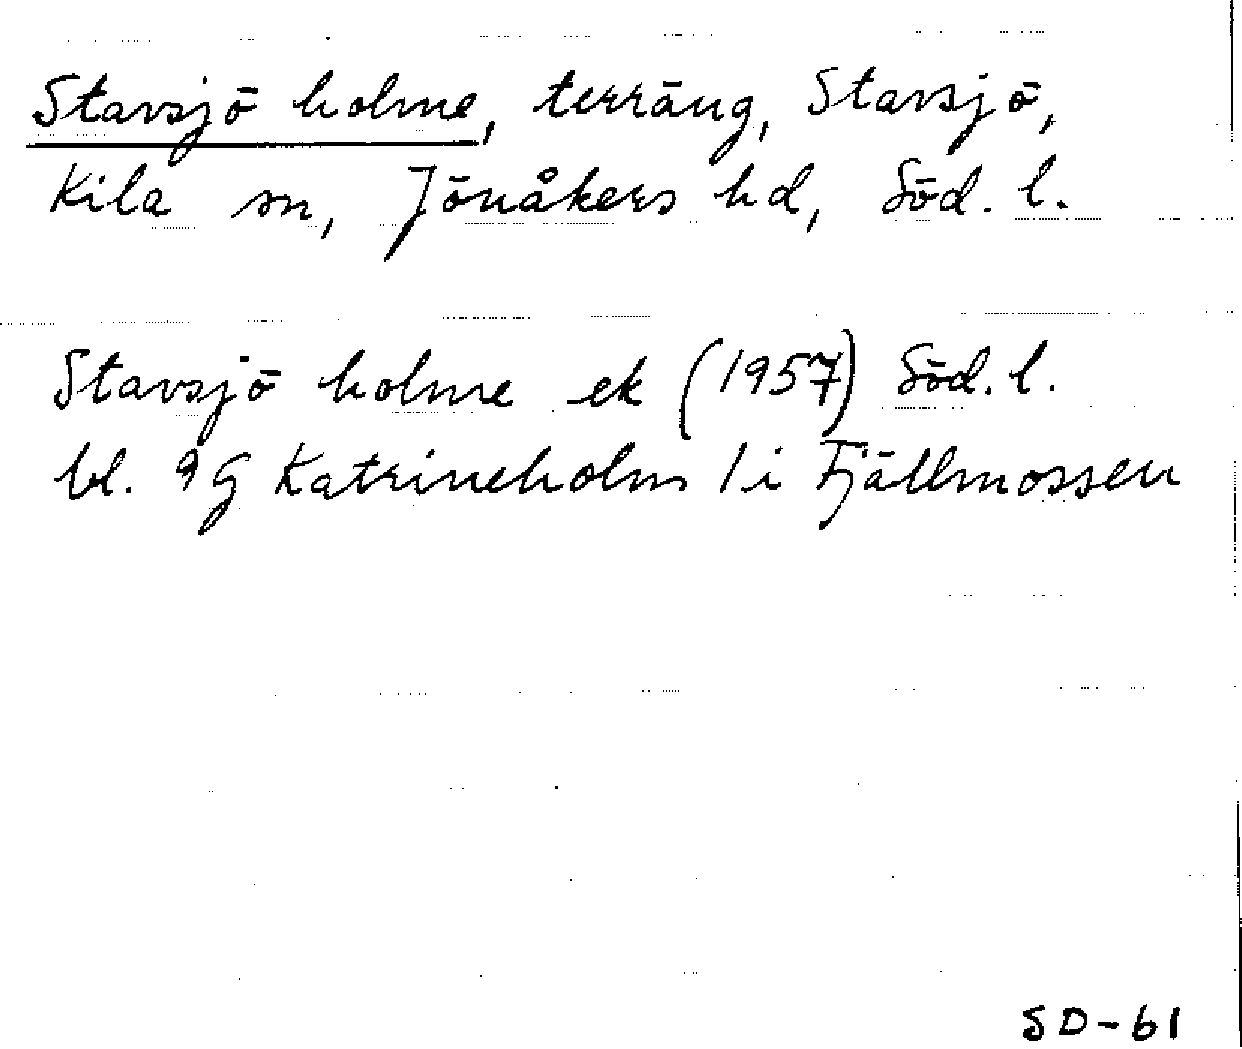 Stavsjö holme, terräng, Stavsjö,
Kila sn, Jönåkers hd, Söd. l.
Stavsjö holme ek (1957) Söd. l.
bl. 9G Katrineholm 1i Fjällmossen
SD-61